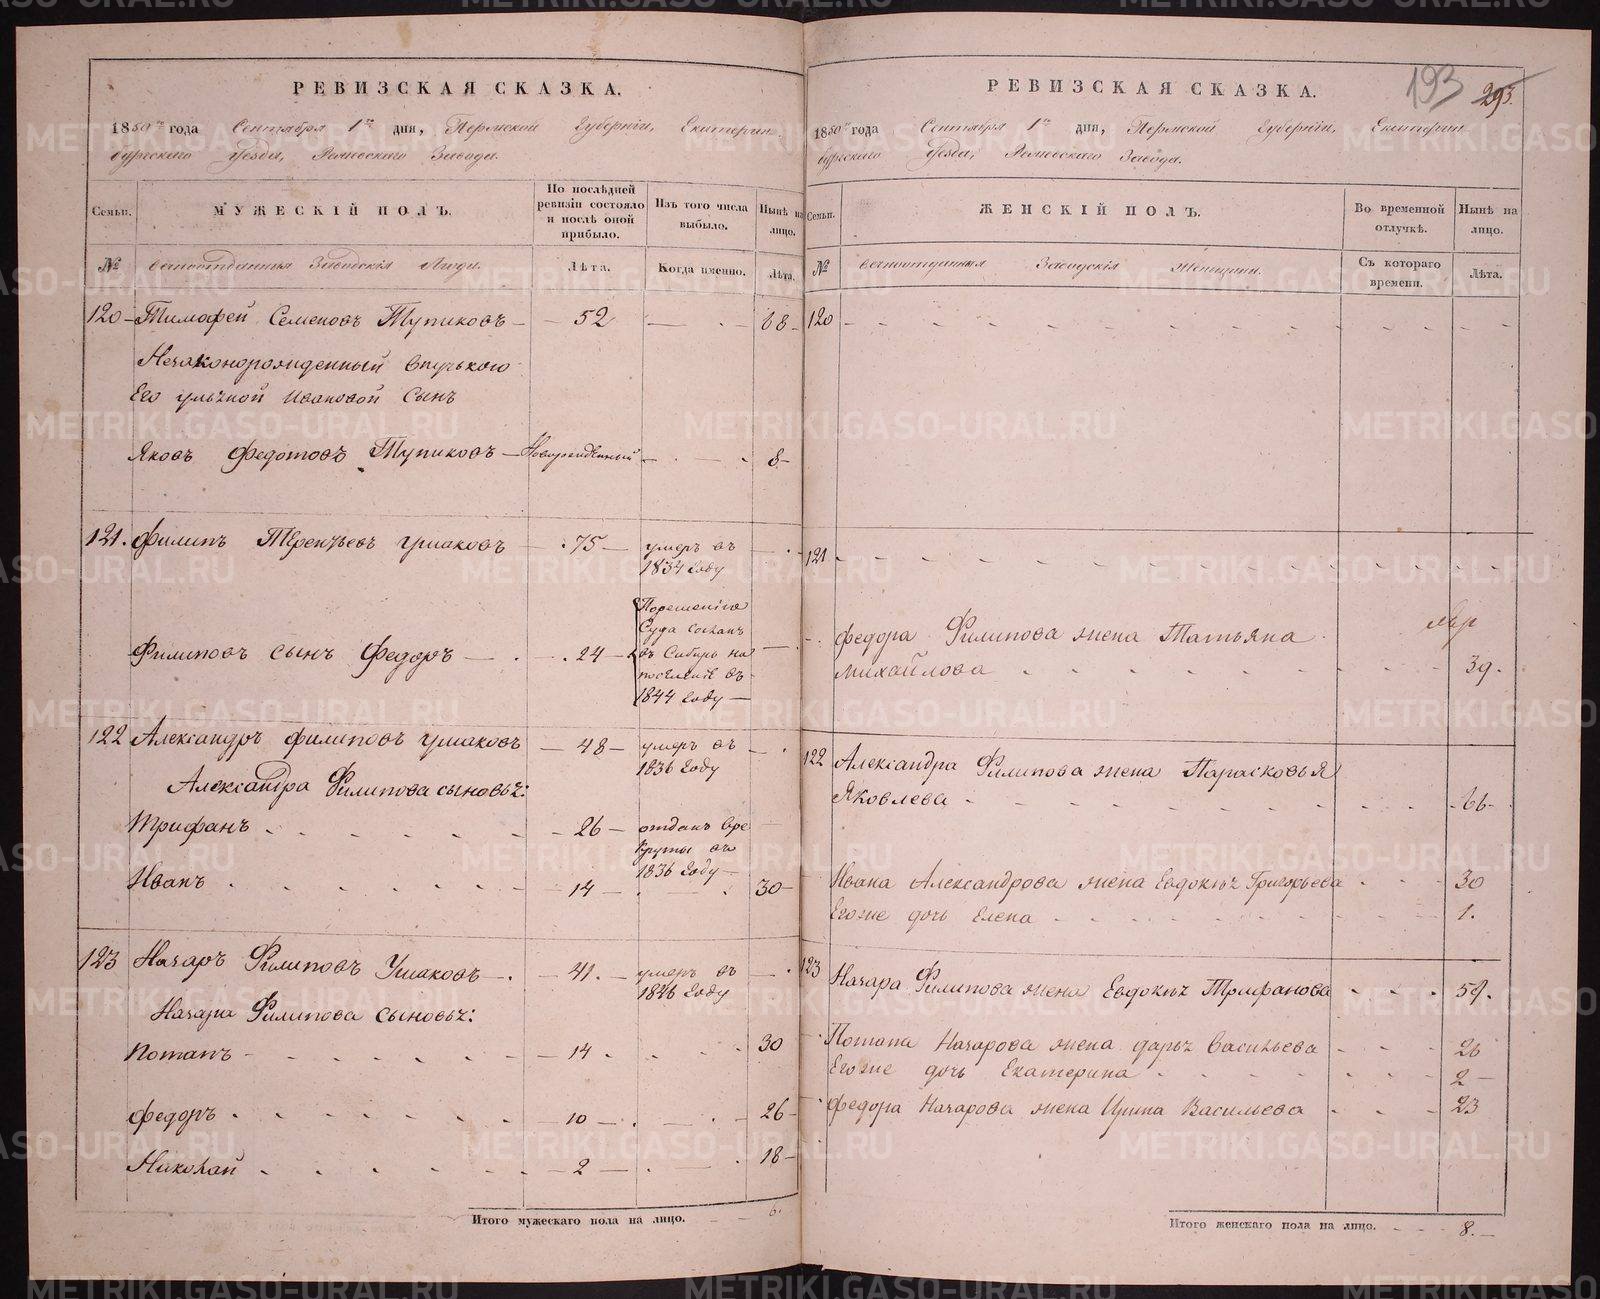 РЕВИЗСКАЯ СКАЗКА.
1850 года Сентября 1го дня, Пермской Губернiи, Екатерин
бургскаго Уезда, Завода.
Семьи.
МУЖЕСКIЙ ПОЛЪ.
По послѣдней ревизiи состояло и послѣ оной прибыло.
Изъ того числа выбыло.
Нынѣ на лицо.
№
вечноотданныя Заводскiя Люди.
Лѣта.
Когда именно.
Лѣта.
120 Тимофей Семеновъ Тупиковъ 52 68
Незаконорожденный
Его Ивановой Сынъ
Яковъ Федотовъ Тупиковъ Новорожденный 8
121. Филипъ Терентьевъ Ушаковъ 75 умеръ въ
1834 Году
Филиповъ сынъ Федоръ 24
Порешенiю
Суда сосланъ
въ Сибирь на
поселенiе въ
1844 Году
122 Александръ Филиповъ Ушаковъ 48 умеръ въ
1836 Году
Александра Филипова сыновья:
Трифанъ 26 отданъ вре
круты въ
1836 Году
Иванъ 14 30
123 Назаръ Филиповъ Ушаковъ 41. умеръ въ
1846 Году
Назара Филипова сыновья:
Потапъ 14 30
Федоръ 10 26
Николай 2 18
Итого мужескаго пола на лицо. 6.
193 293.
РЕВИЗСКАЯ СКАЗКА.
1850 года Сентября 1го дня, Пермской Губернiи, Екатерин
бургскаго Уезда, Завода.
Семьи.
ЖЕНСКIЙ ПОЛЪ.
Во временной отлучкѣ.
Нынѣ на лицо.
№
вечноотданныя Заводскiя Женщины.
Съ котораго времени.
Лѣта.
120
121
Федора Филипова жена Татьяна
Михайлова 39.
122 Александра Филипова жена Парасковья
Яковлева 66
Ивана Александрова жена Евдокья Григорьева 30
Егоже дочь Елена 1.
123 Назара Филипова жена Евдокья Трифанова 59.
Потапа Назарова жена Дарья Васильева 26
Егоже дочь Екатерина 2
Федора Назарова жена Васильева 23
Итого женскаго пола на лицо. 8.
METRIKI.GASO-URAL.RU